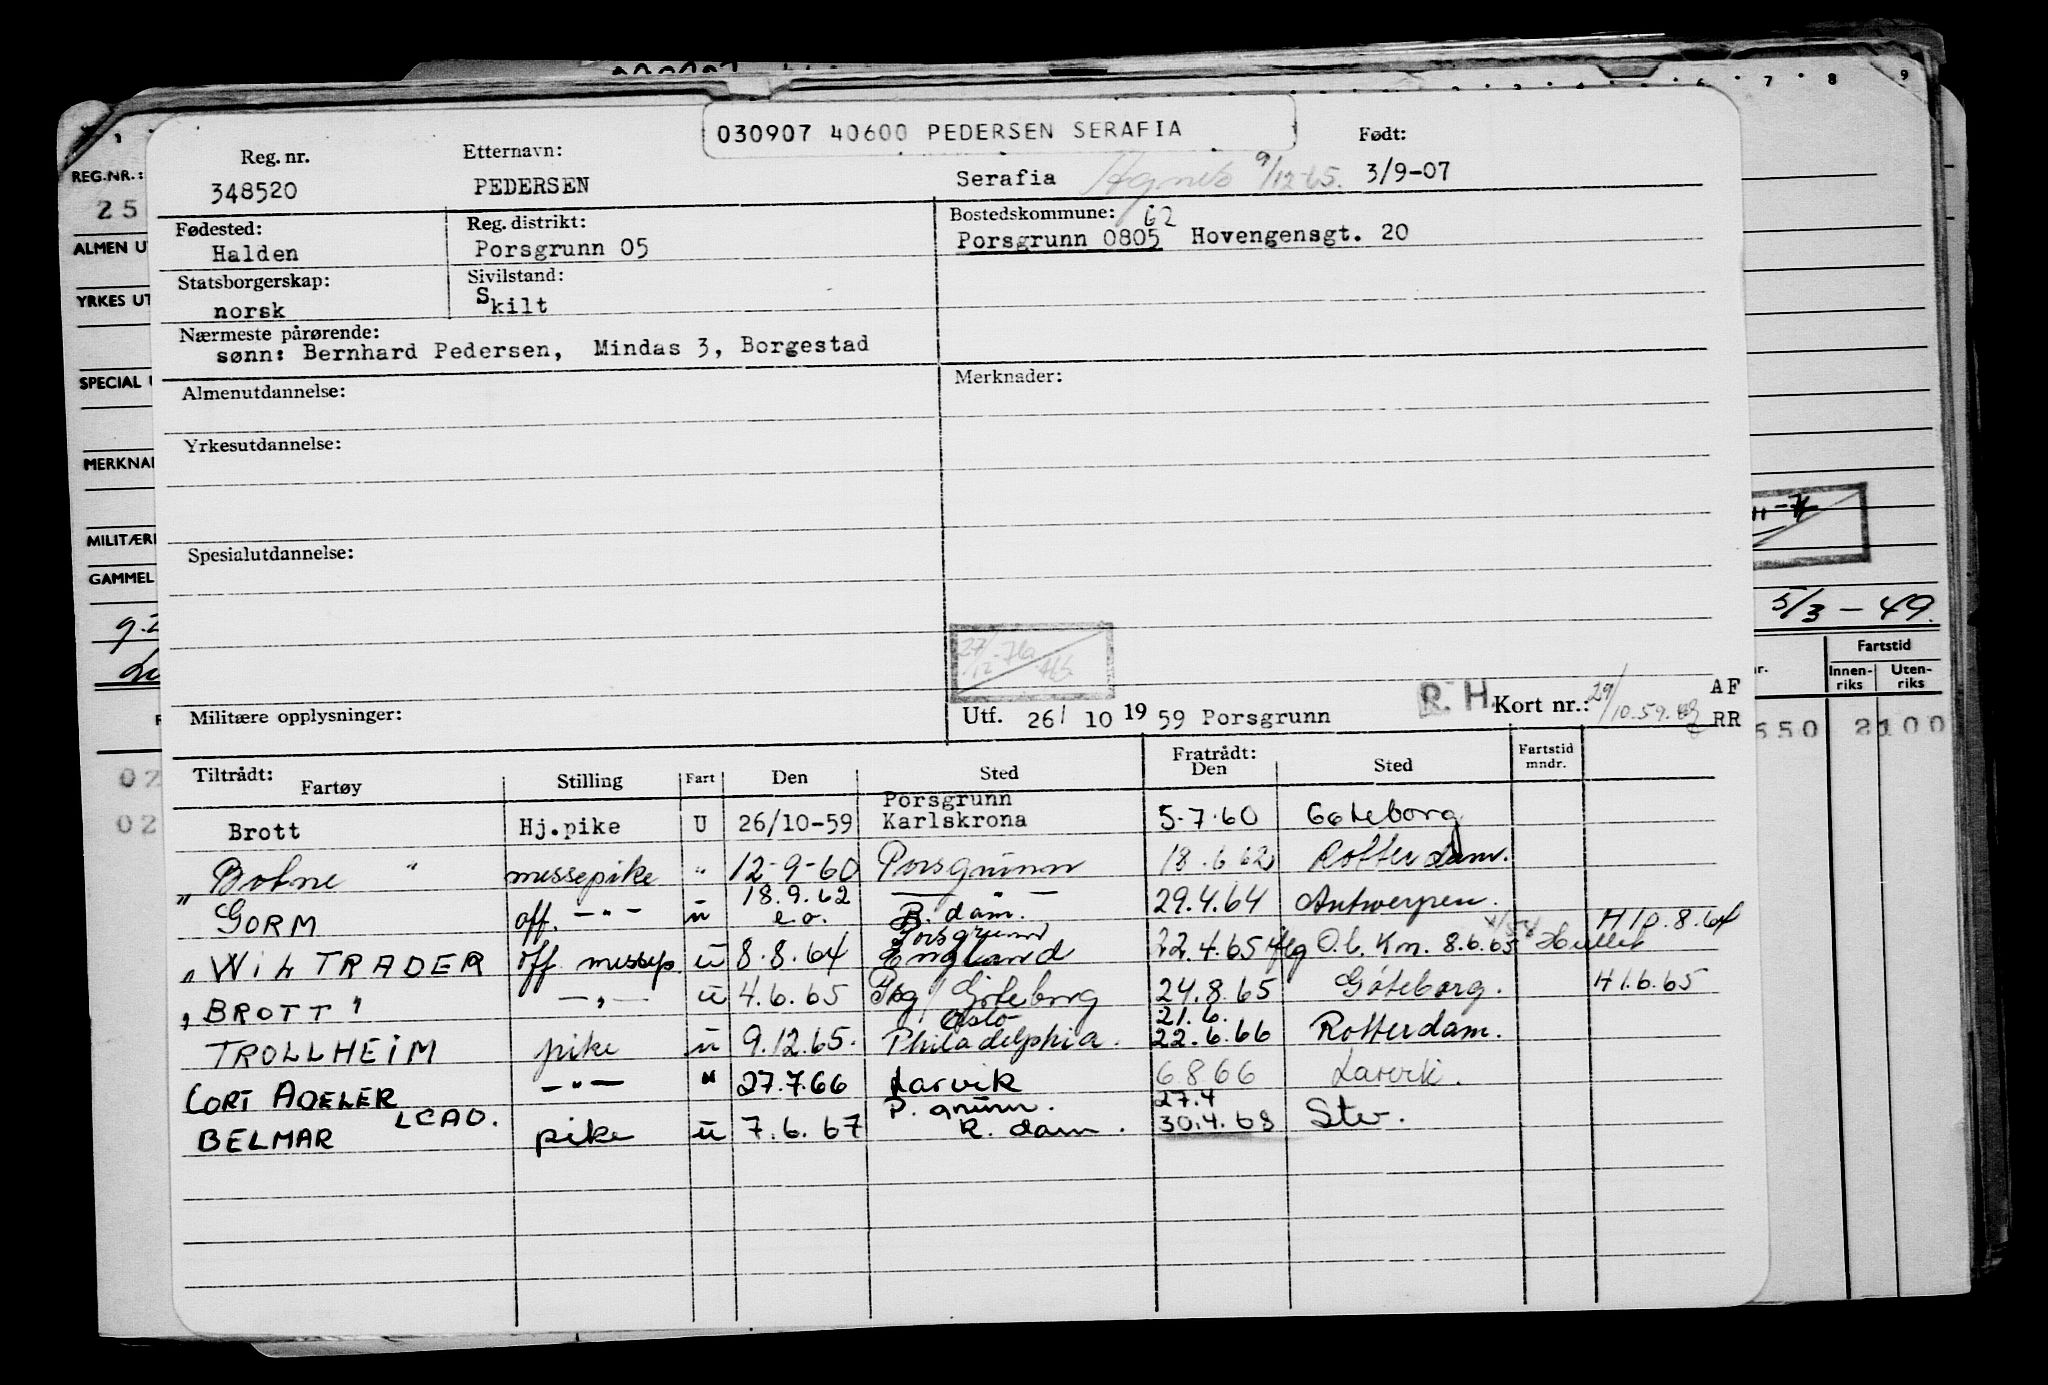 6 7 8 9
030907 40600 PEDERSEN SERAFIA
Reg. nr. Etternavn: Født:
348520 PEDERSEN Serafia Agnes 9/12-65. 3/9-07
Fødested: Reg. distrikt: Bostedskommune: 62
Halden Porsgrunn 05 Porsgrunn 0805 Hovengensgt. 20
Statsborgerskap: Sivilstand:
norsk Skilt
Nærmeste pårørende:
sønn: Bernhard Pedersen, Mindas 3, Borgestad
Almenutdannelse: Merknader:
Yrkesutdannelse:
Spesialutdannelse:
Militære opplysninger: Utf. 26/ 10 19 59 Porsgrunn R. H. Kort nr.: 29/10.59. AF RR
Tiltrådt: Fartøy Stilling Fart Den Sted Fratrådt: Den Sted Fartstid mndr.
Brott Hj.pike U 26/10-59 Porsgrunn Karlskrona 5.7.60 Göteborg
" Botne " messepike " 12-9-60 Porsgrunn 18.6 62 Rotterdam.
GORM off. -"- u 18.9.62 e.o. — " — R. dam. 29.4.64 Antwerpen.
H 10.8.64
" WIL TRADER off messep u 8.8.64 Porsgrunn England 22.4.65 flg O.b. Km. 8.6.65
" BROTT " -"- u 4.6.65 Pbg / Göteborg 24.8.65 Göteborg. H 1.6.65
TROLLHEIM pike u 9.12.65. Oslo Philadelphia. 21.6. 22.6.66 Rotterdam.
CORT ADELER -"- " 27.7.66 Larvik 6.8.66 Larvik.
BELMAR LCAO. pike u 7.6.67 P. grunn. R. dam. 27.4 30.4.68 Stv.
REG.NR.:
25
ALMEN UT
YRKES UT
SPECIAL U
MERKNAD
MILITÆRE
GAMMEL
02
02
5/3 - 49.
Fartstid
Innen-riks Uten-riks
550 2100